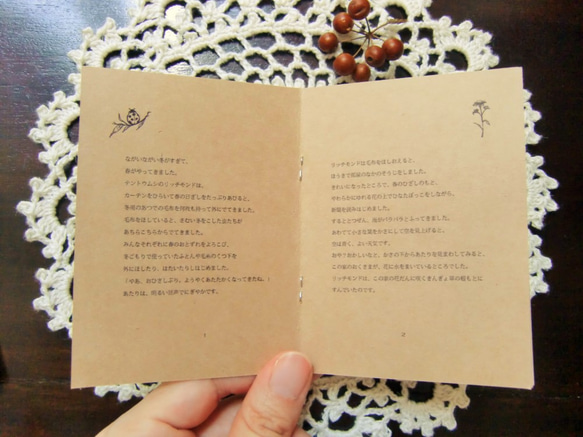 ながいながい冬がすぎて、
春がやってきました。
テントウムシのリッチモンドは、
カーテンをひらいて春のひざしをたっぷりあびると、
冬用のあつでの毛布を何枚も持って外にでてきました。
毛布をほしていると、さむい冬をこした虫たちが
あちらこちらからでてきました。
みんなそれぞれに春のおとずれをよろこび、
冬ごもりで使っていたふとんや毛糸のくつ下を
外にほしたり、はたいたりしはじめました。
「やあ、おひさしぶり。ようやくあたたかくなってきたね。」
あたりは、明るい話声でにぎやかです。
1
リッチモンドは毛布をほしおえると、
ほうきで部屋のなかのそうじをしました。
きれいになったところで、春のひざしのもと、
やわらかにゆれる花の上でひなたぼっこをしながら、
新聞を読みはじめました。
するととつぜん、雨がパラパラとふってきました。
あわてて小さな葉をかさにして空を見上げると、
空は青く、よい天気です。
おや？おかしいなと、かさの下からあたりを見まわしてみると、
この家のおくさまが、花に水をまいているところでした。
リッチモンドは、この家の花だんに咲くきんぎょ草の根もとに
すんでいたのです。
2